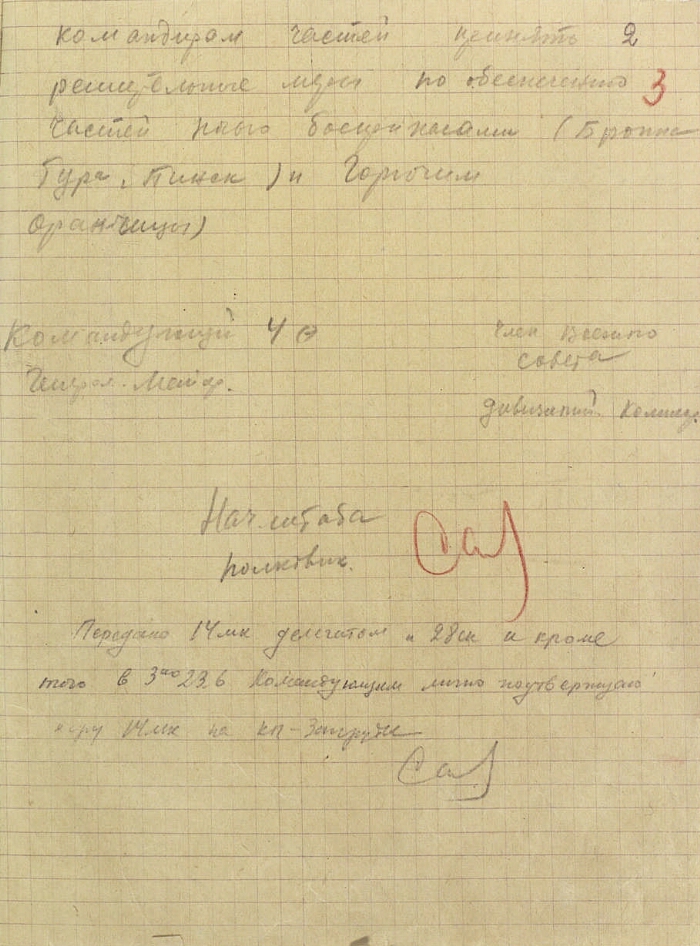 командирам частей принять 2
решительные меры по обеспечению 3
частей боеприпасами (Бронна
Гура, Пинск) и Горючим
Оранчицы)
Командующий 4 А
Генерал-Майор.
Член Военного
Совета
дивизион. Комиссар
Нач. штаба
полковник. Сан
Передано 14 мк делегатом и 28 ск и кроме
того в 3 00 23.6 Командующим лично подтверждено
14 мк на кп-Запруды
Сан